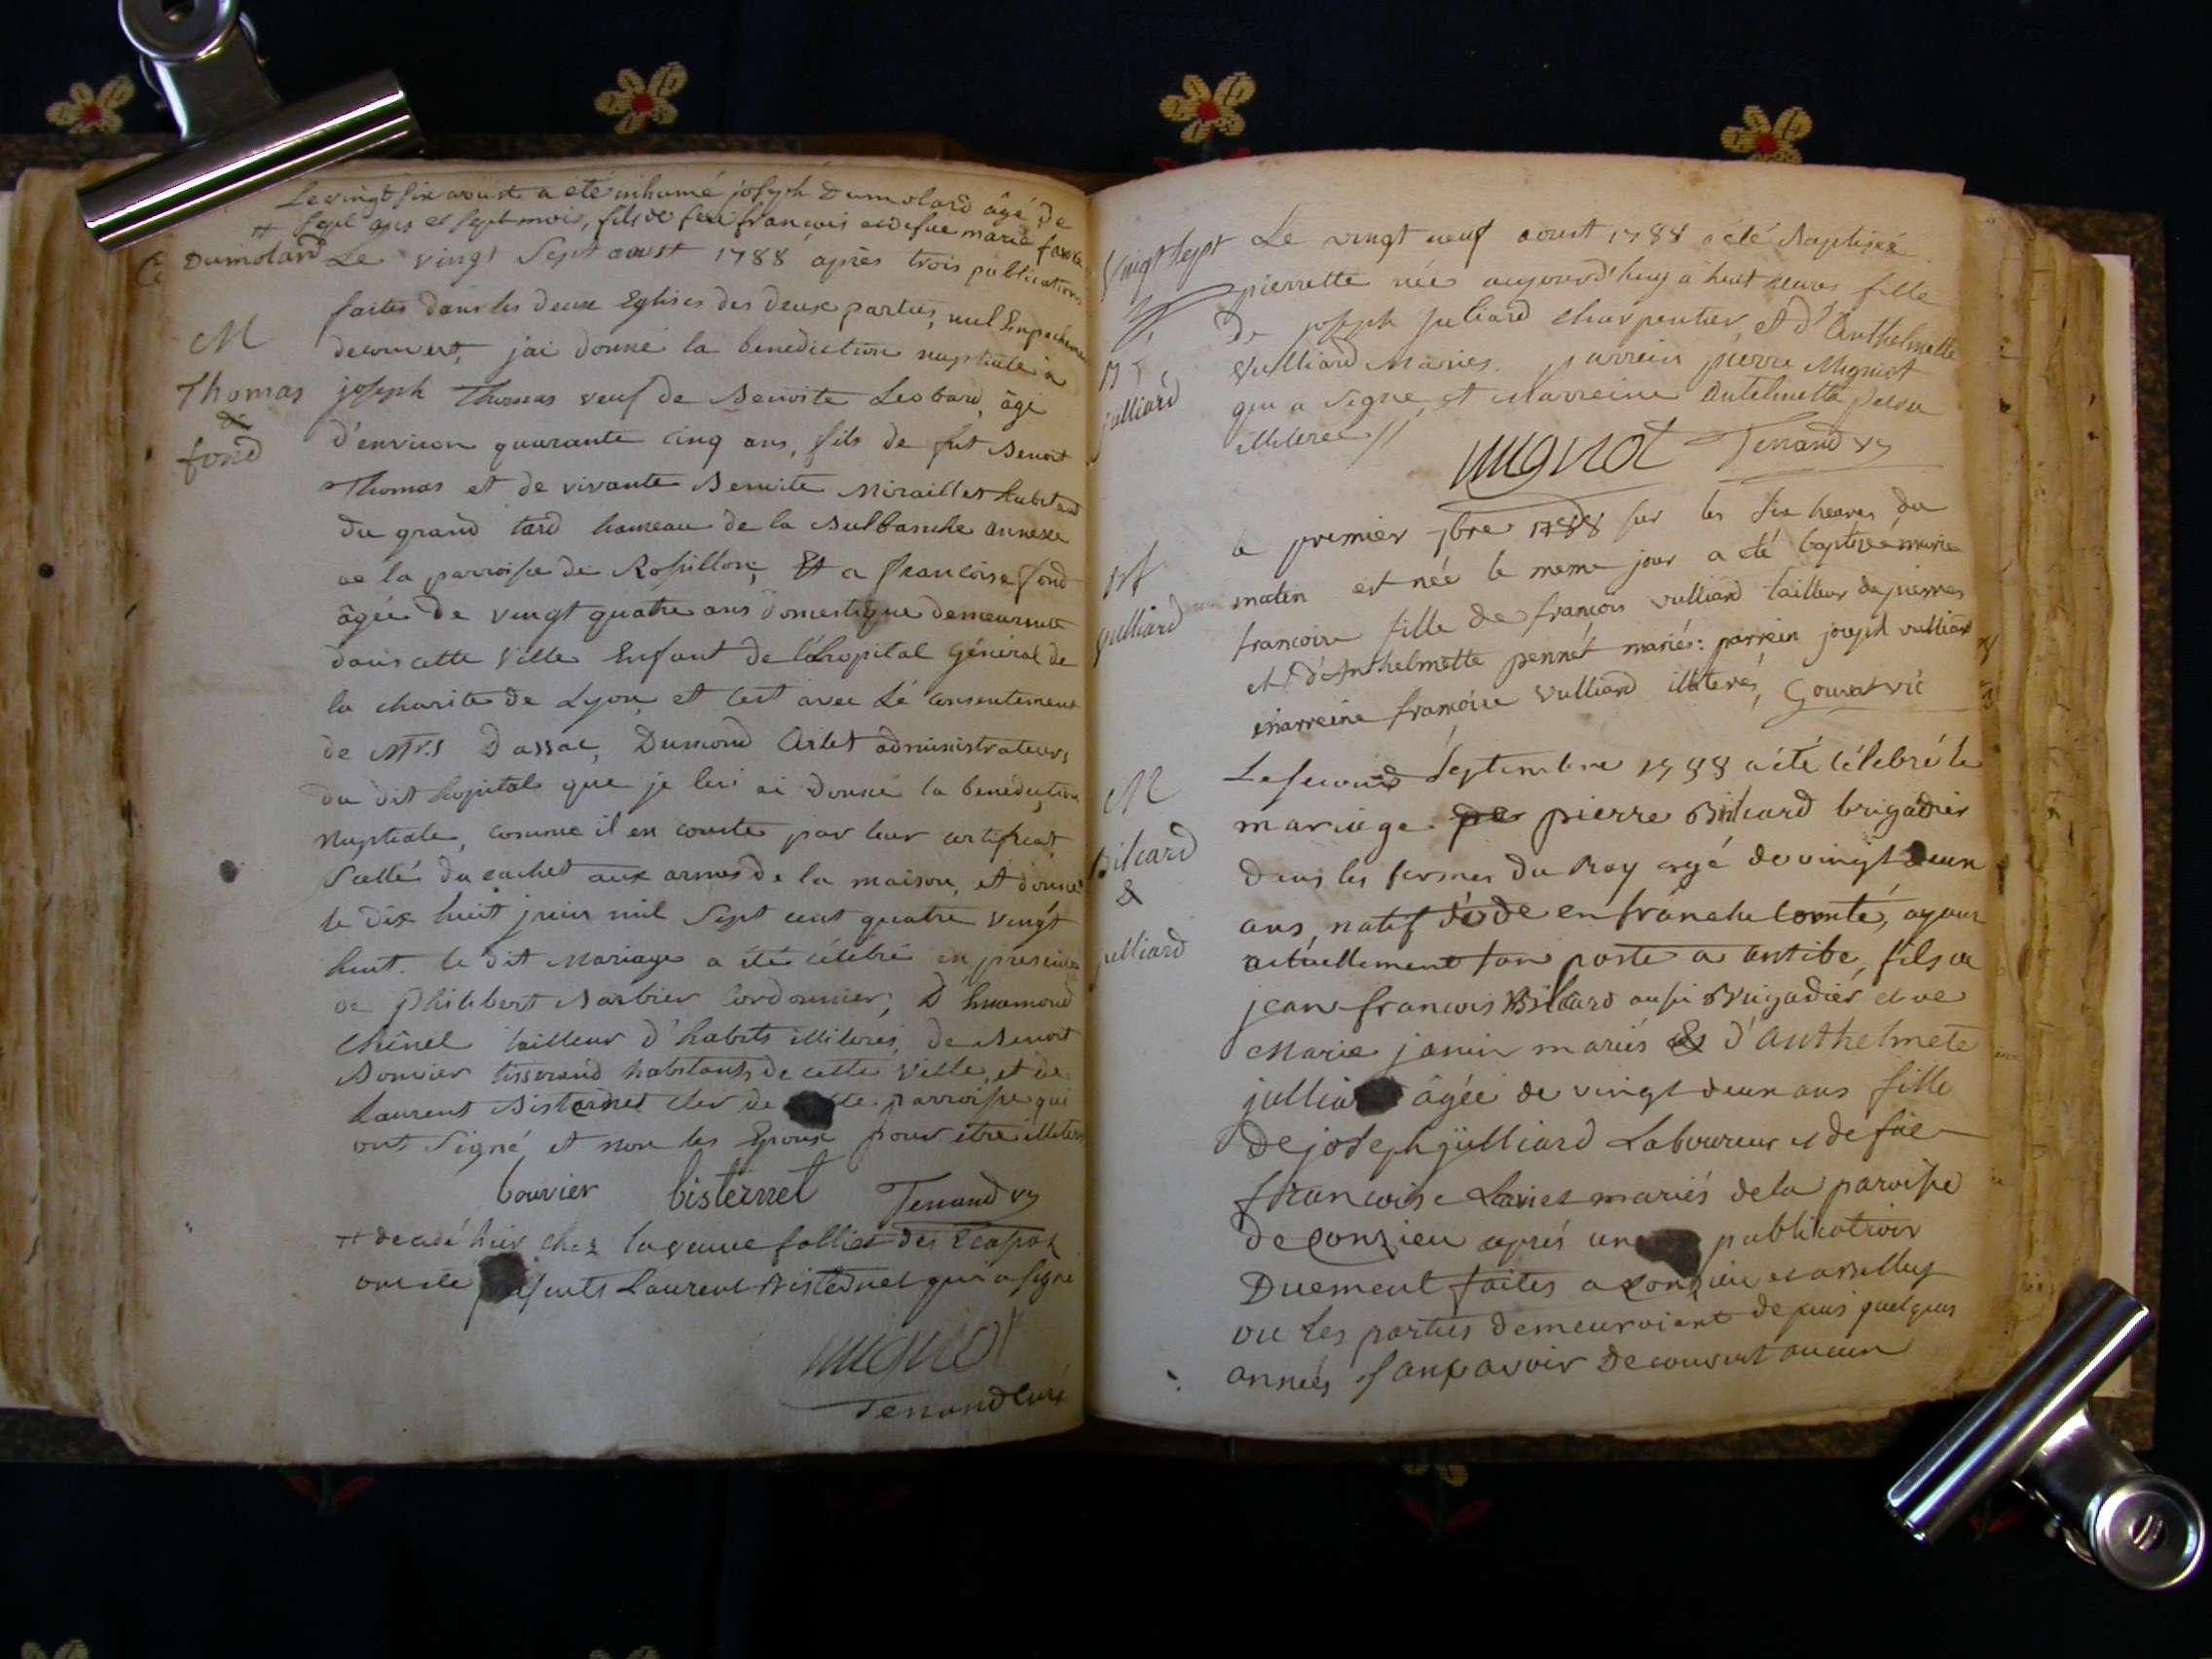 Le vingt six aoust a été inhumé joseph Dumolard âgé de
# sept ans et sept mois, fils de feu françois et de fue marie favre
Dumolard
Le vingt Sept aoust 1788 après trois publications
faites dans les deux Eglises des deux parties, nul Empechement
M
decouvert, jai donné la benediction nuptiale à
Thomas
&
fond
joseph Thomas veuf de Benoite Leobard, âgé
d'environ quarante cinq ans, fils de fut Benoit
Thomas et de vivante Benoite Miraillet habitant
du grand tard hameau de la Bulbanche annexe
de la parroisse de Rossillon, Et a francoise fond
âgée de vingt quatre ans domestique demeurante
dans cette Ville Enfant de l'hopital Général de
la charite de Lyon, et cest avec Le consentement
de Mrs Dassac, Dumond Arlet administrateurs
du dit hopital que je lui ai donné la benediction
Nuptiale, comme il en conste par leur certificat
Scellé du cachet aux armes de la maison, et donné
le dix huit juin mil Sept cent quatre vingt
huit. le dit Mariage a été célébré en presence
de Philibert Barbier Cordonnier,
Chênel tailleur d'habits illiterés, de Benoit
Bouvier tisserand habitants de cette Ville, et de
Laurent Bisternet clerc de parroisse qui
ont Signé et non les Epoux pour être illiterés
bouvier bisternet Tenand vic
# decedé hier chez la veuve follies des Ecassaz
ont été Laurent Bisternet qui a signé
mignot
Tenand curé
Vingt Sept
Le vingt neuf aoust 1788 a été Baptisée
pierrette née aujourd'huy a huit heures fille
Bt
julliard
de joseph juliard charpentier, et d'Anthelmette
Vulliard Mariés. parrein pierre Mignot
qui a Signé, et Marreine Antelmette
illiterée //
mignot Tenand vic
Bt
vulliard
le premier 7bre 1788 sur les six heures du
matin est née le meme jour a été baptisée marie
francoise fille de francois vulliard tailleur de pierres
et d'Anthelmette pennét mariés: parrein joseph vulliard
marreine francoise Vulliard illiterés, Gouvat vic
M
Bilcard
&
julliard
Le second Septembre 1788 a été célébré le
mariage pierre Bilcard brigadier
dans les fermes du Roy agé de vingt deux
ans, natif en franche comté, ayant
actuellement son poste a antibe, fils de
jean francois Bilcard aussi Brigadier et de
Marie janin mariés & d'Anthelmete
julliard âgée de vingt deux ans fille
de joseph julliard Laboureur et de fue
francoise Lanet mariés de la paroisse
de conzieu après une publication
Duement faites a conzieu et a Belley
ou les parties demeuroient depuis quelques
années sans avoir decouvert aucun